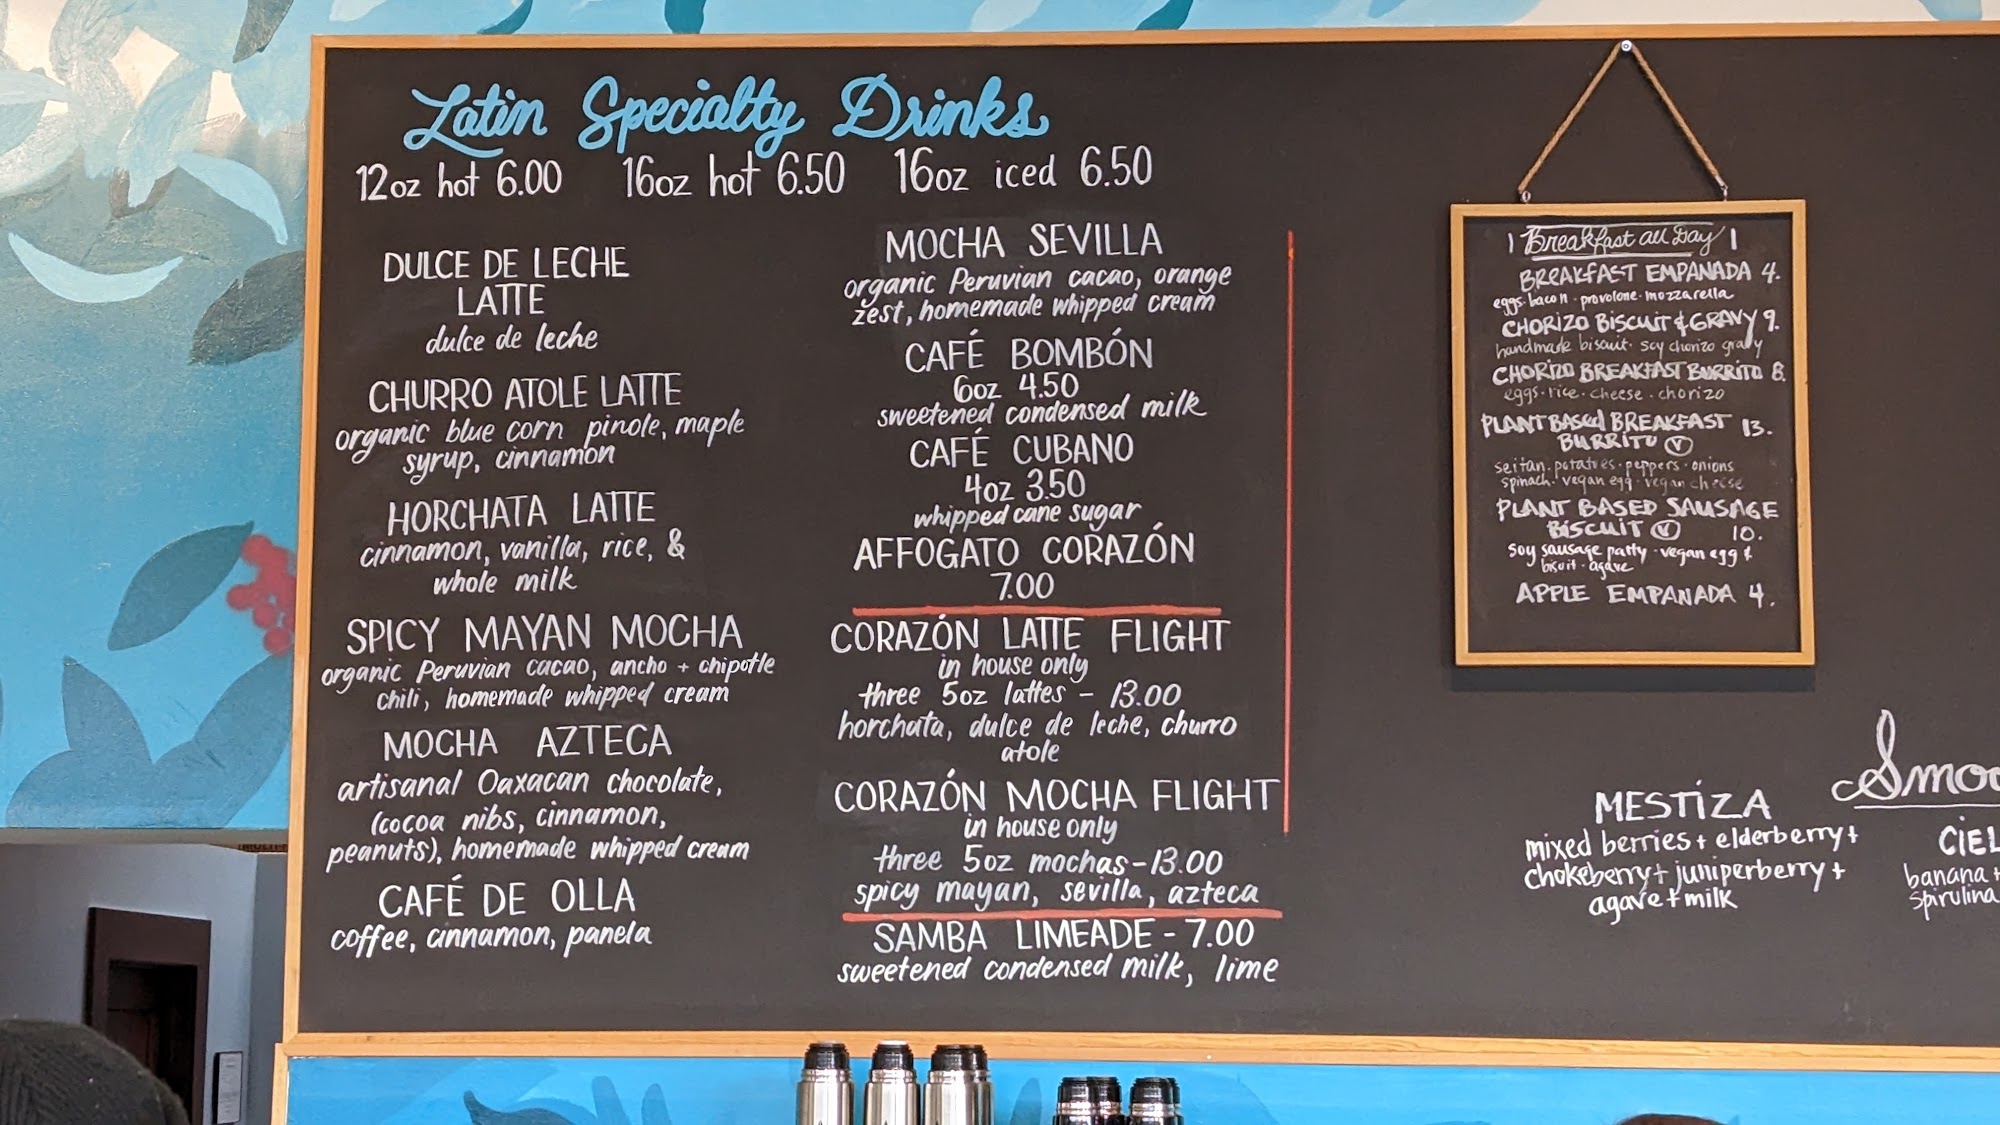 Latin Specialty Drinks
12oz hot 6.00 16oz hot 6.50 16oz iced 6.50
DULCE DE LECHE
LATTE
dulce de leche
CHURRO ATOLE LATTE
organic blue corn pinole, maple
syrup, cinnamon
HORCHATA LATTE
cinnamon, vanilla, rice, &
whole milk
SPICY MAYAN MOCHA
organic Peruvian cacao, ancho + chipotle
chili, homemade whipped cream
MOCHA AZTECA
artisanal Oaxacan chocolate,
(cocoa nibs, cinnamon,
peanuts), homemade whipped cream
CAFÉ DE OLLA
coffee, cinnamon, panela
MOCHA SEVILLA
organic Peruvian cacao, orange
zest, homemade whipped cream
CAFÉ BOMBÓN
6oz 4.50
sweetened condensed milk
CAFÉ CUBANO
4oz 3.50
whipped cane sugar
AFFOGATO CORAZÓN
7.00
CORAZÓN LATTE FLIGHT
in house only
three 5oz lattes - 13.00
horchata, dulce de leche, churro
atole
CORAZÓN MOCHA FLIGHT
in house only
three 5oz mochas-13.00
spicy mayan, sevilla, azteca
SAMBA LIMEADE - 7.00
sweetened condensed milk, lime
Breakfast all Day
BREAKFAST EMPANADA 4.
eggs · bacon · provolone · mozzarella
CHORIZO BISCUIT & GRAVY 9.
handmade biscuit · soy chorizo gravy
CHORIZO BREAKFAST BURRITO 8.
eggs · rice · cheese · chorizo
PLANT BASED BREAKFAST 13.
BURRITO V
seitan · potatoes · peppers · onions
spinach · vegan egg · vegan cheese
PLANT BASED SAUSAGE
BISCUIT V 10.
soy sausage patty · vegan egg &
biscuit · agave
APPLE EMPANADA 4.
Smoo
MESTIZA
mixed berries + elderberry +
chokeberry + juniperberry +
agave + milk
CIEL
banana +
spirulina